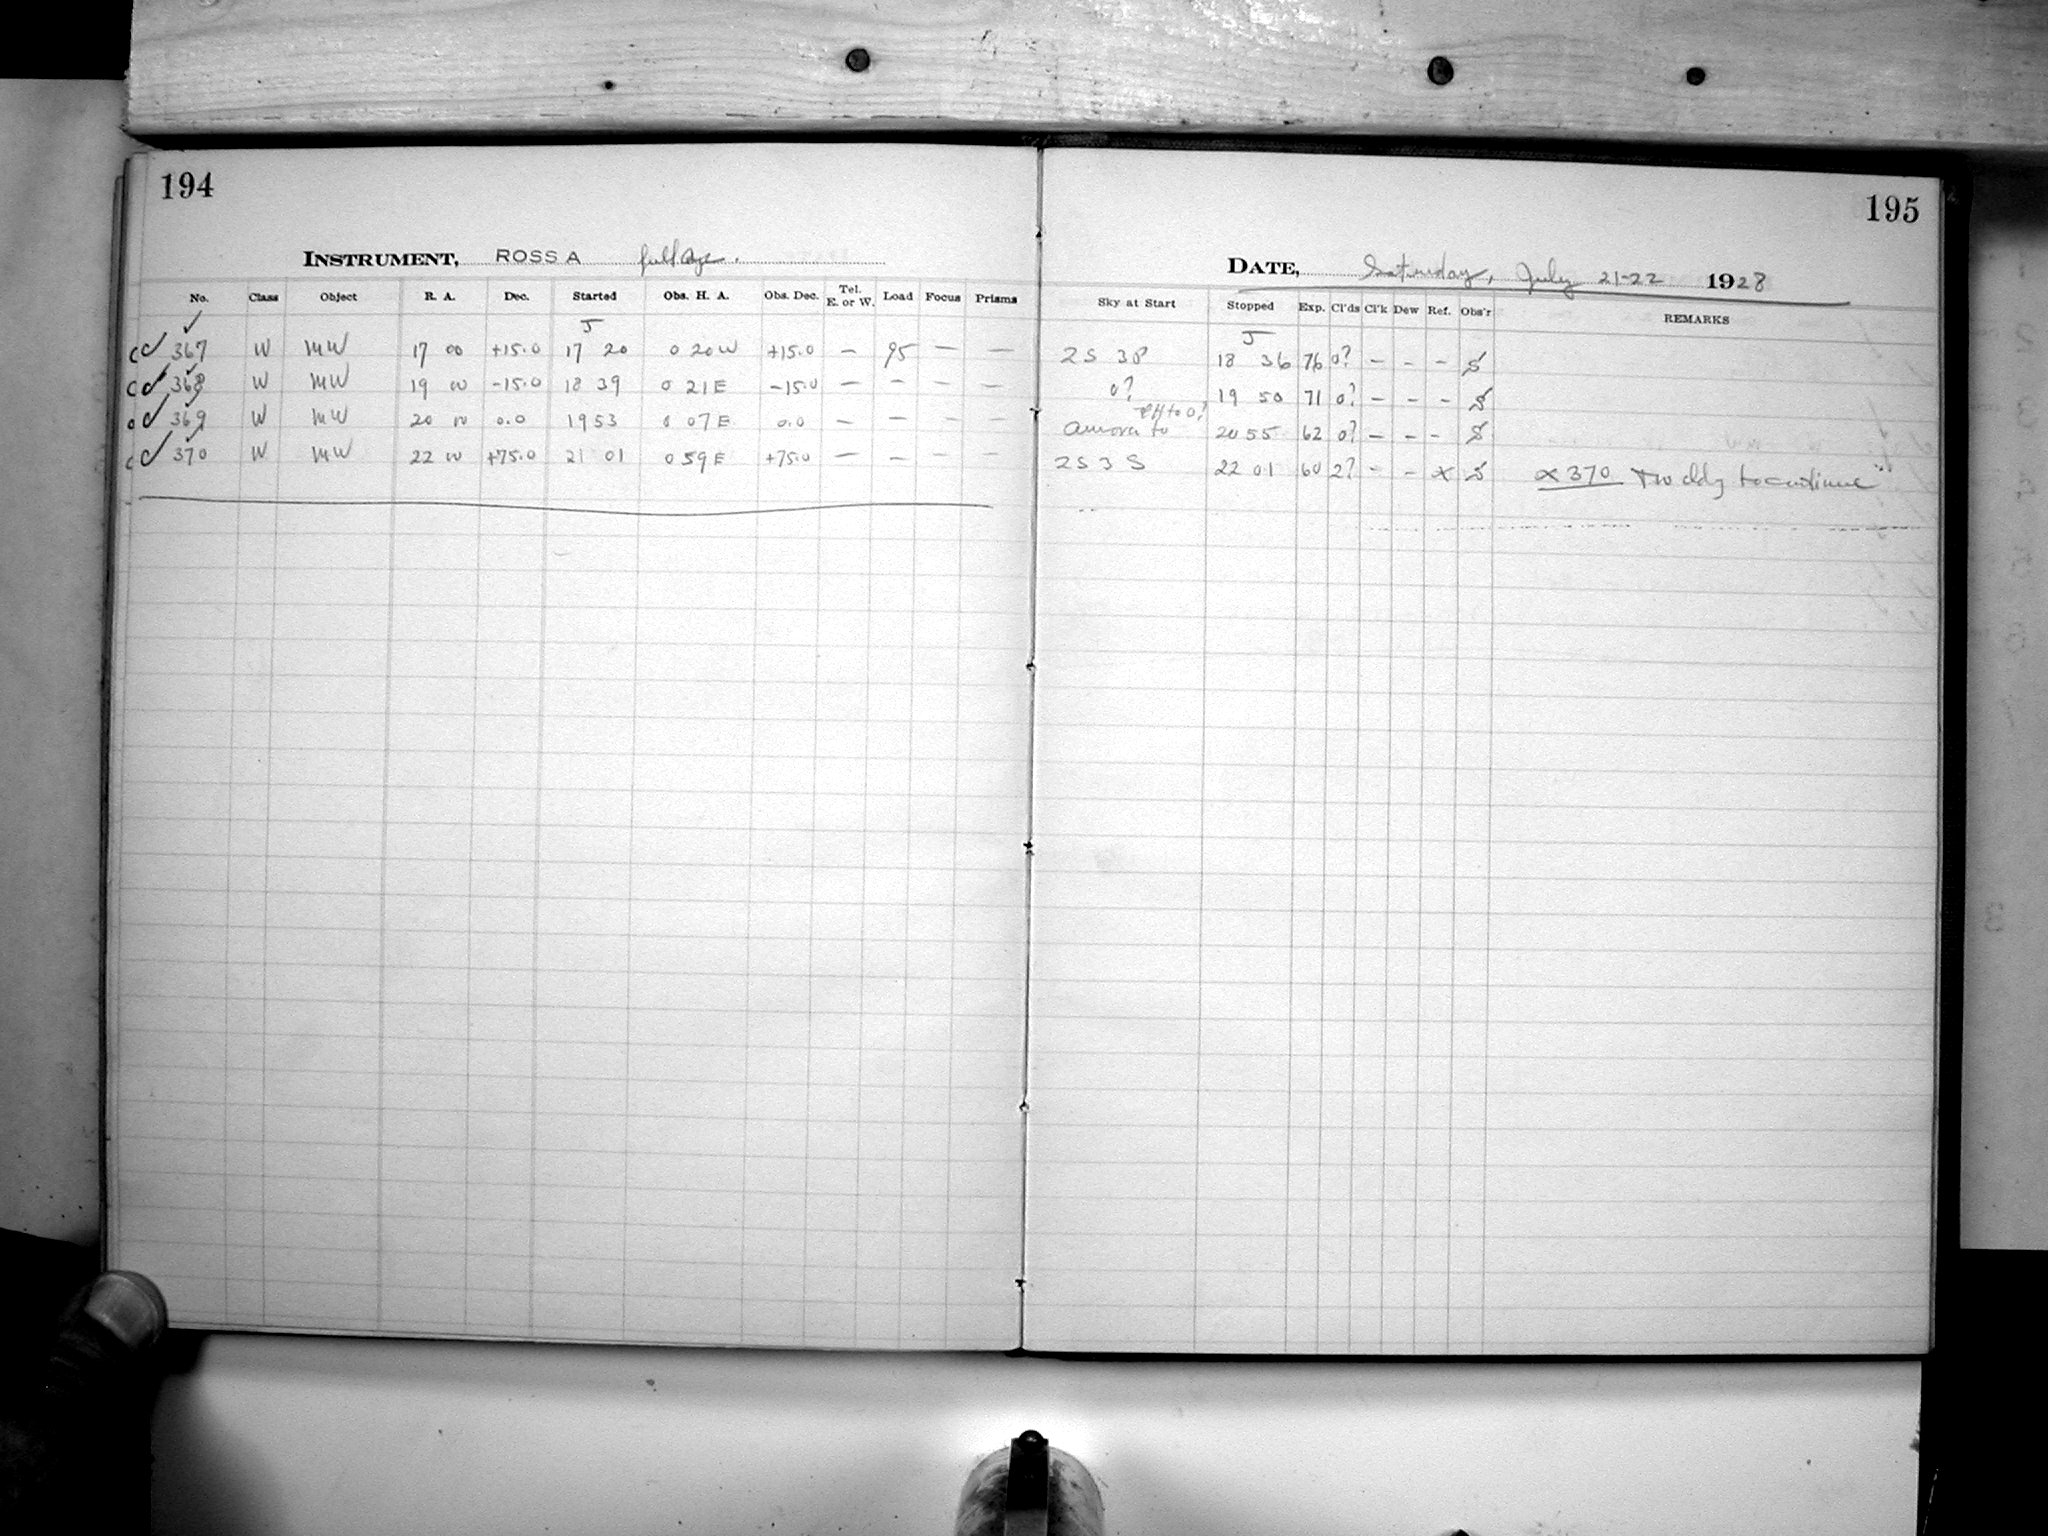 194
INSTRUMENT, ROSS A full ap.
No. Class Object R. A. Dec. Started Obs. H. A. Obs. Dec. Tel. E. or W. Load Focus Prisms
J
367 W MW 17 00 +15.0 17 20 0 20 W +15.0 — 95 — —
368 W MW 19 00 -15.0 18 39 0 21 E -15.0 — — — —
369 W MW 20 00 0.0 19 53 0 07 E 0.0 — — — —
370 W MW 22 00 +75.0 21 01 0 59 E +75.0 — — — —
195
DATE, Saturday, July 21-22 1928
Sky at Start Stopped Exp. Cl'ds Cl'k Dew Ref. Obs'r REMARKS
J
2S 3P 18 36 76 0? — — — S
0? 19 50 71 0? — — — S
to 0?
aurora to 20 55 62 0? — — — S
2S 3 S 22 01 60 2? — — x S x 370 Too cldy to continue